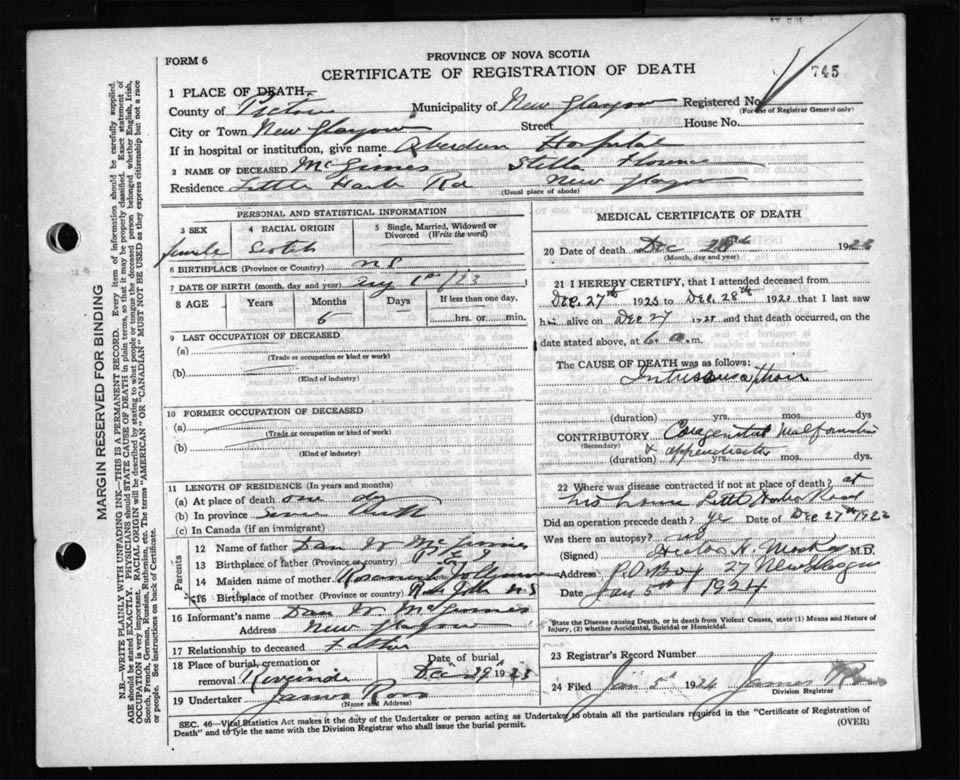 PROVINCE OF NOVA SCOTIA
FORM 6
CERTIFICATE OF REGISTRATION OF DEATH
745
1 PLACE OF DEATH
County of Pictou Municipality of New Glasgow Registered No.
(For use of Registrar General only)
City or Town New Glasgow Street House No.
If in hospital or institution, give name Aberdeen Hospital
2 NAME OF DECEASED McGinnes Stella Florence
Residence Little Harb Rd New Glasgow
(Usual place of abode)
MARGIN RESERVED FOR BINDING
N.B.—WRITE PLAINLY WITH UNFADING INK—THIS IS A PERMANENT RECORD. Every item of information should be carefully supplied.
AGE should be stated EXACTLY. PHYSICIANS should STATE CAUSE OF DEATH in plain terms, so that it may be properly classified. Exact statement of
OCCUPATION is very important. RACIAL ORIGIN will be described by stating to what people or tongue the deceased person belonged whether English, Irish,
Scotch, French, German, Russian, Ruthenian, etc. The terms "AMERICAN" OR "CANADIAN" MUST NOT BE USED as they express citizenship but not a race
or people. See instructions on back of Certificate.
PERSONAL AND STATISTICAL INFORMATION
3 SEX
female
4 RACIAL ORIGIN
Scotch
5 Single, Married, Widowed or
Divorced (Write the word)
6 BIRTHPLACE (Province or Country) N S
7 DATE OF BIRTH (month, day and year) Aug 1st / 23
8 AGE Years Months Days If less than one day,
6 hrs. or min.
9 LAST OCCUPATION OF DECEASED
(a)
(Trade or occupation or kind or work)
(b)
(Kind of industry)
10 FORMER OCCUPATION OF DECEASED
(a)
(Trade or occupation or kind of work)
(b)
(Kind of industry)
11 LENGTH OF RESIDENCE (In years and months)
(a) At place of death one dy
(b) In province since birth
(c) In Canada (if an immigrant)
Parents
12 Name of father Dan W McGinnes
13 Birthplace of father (Province or country) P E I
14 Maiden name of mother
15 Birthplace of mother (Province or country) N S
16 Informant's name Dan W. McGinnes
Address New Glasgow
17 Relationship to deceased Father
18 Place of burial, cremation or
removal Riverside
Date of burial
Dec 29 1923
19 Undertaker James Ross
(Name and Address)
MEDICAL CERTIFICATE OF DEATH
20 Date of death Dec 28th 1923
(Month, day and year)
21 I HEREBY CERTIFY, that I attended deceased from
Dec. 27th 1923 to Dec. 28th 1923 that I last saw
him alive on Dec 27 1923 and that death occurred, on
date stated above, at 6 a.m.
The CAUSE OF DEATH was as follows:
Intussusception
(duration) yrs. mos. dys
CONTRIBUTORY Congenital Malformation
(Secondary)
(duration) yrs. mos. dys
22 Where was disease contracted if not at place of death? at
his home Little Harbor Road
Did an operation precede death? yes Date of Dec 27th 1923
Was there an autopsy? no
(Signed) Hector H. M.D.
Address P.O. Box 27 New Glasgow
Date Jan 5th 1924
*State the Disease causing Death, or in death from Violent Causes, state (1) Means and Nature of
Injury, (2) whether Accidental, Suicidal or Homicidal.
23 Registrar's Record Number
24 Filed Jan 5th 1924 James Ross
Division Registrar
SEC. 46—Vital Statistics Act makes it the duty of the Undertaker or person acting as Undertaker to obtain all the particulars required in the "Certificate of Registration of
Death" and to fyle the same with the Division Registrar who shall issue the burial permit. (OVER)